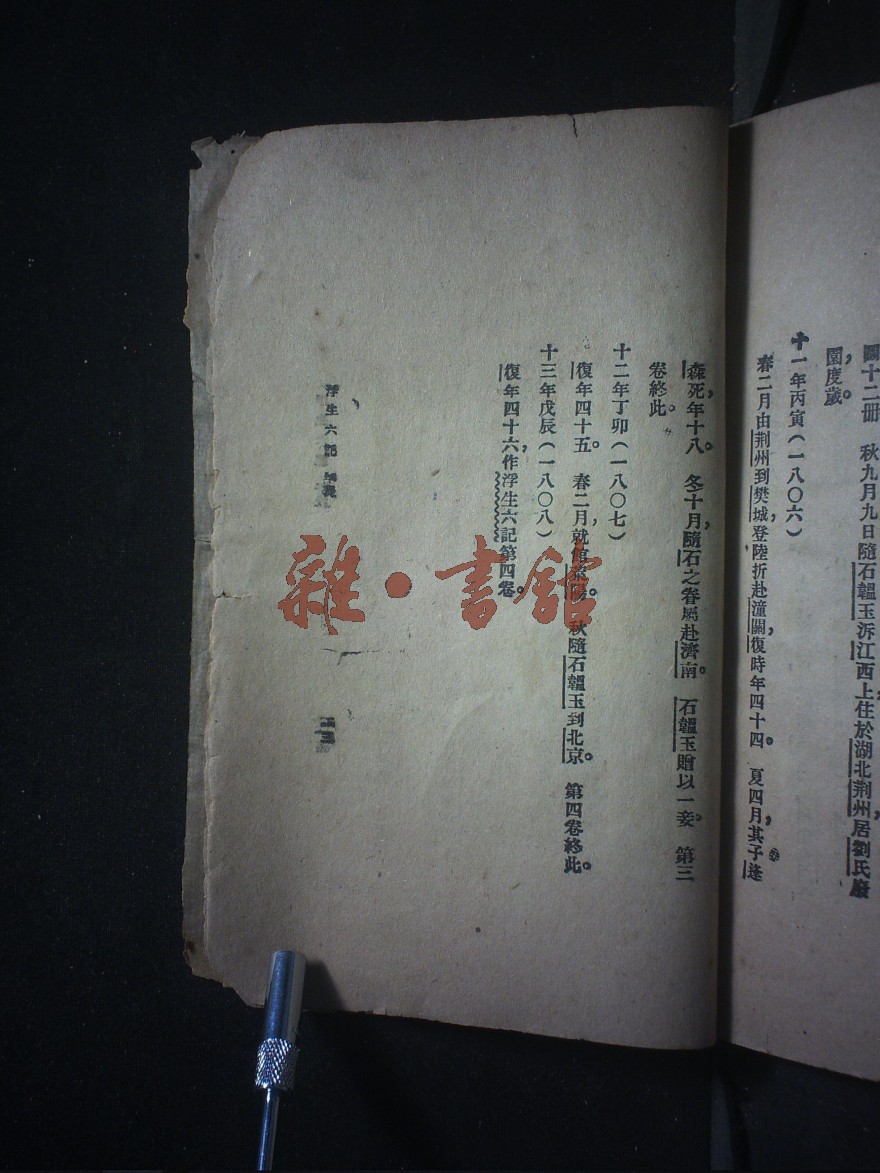 圖十二册　秋九月九日隨石韞玉泝江西上住於湖北荆州，居劉氏廢
園度歲。
十一年丙寅（一八〇六）
春二月由荆州到樊城，登陸折赴潼關，復時年四十四。　夏四月，其子逢
森死，年十八。　冬十月，隨石之眷屬赴濟南。　石韞玉贈以一妾。　第三
卷終此。
十二年丁卯（一八〇七）
復年四十五。　春二月，就館萊陽。　秋隨石韞玉到北京。　第四卷終此。
十三年戊辰（一八〇八）
復年四十六，作浮生六記第四卷。
浮生六記　年表
雜·書館